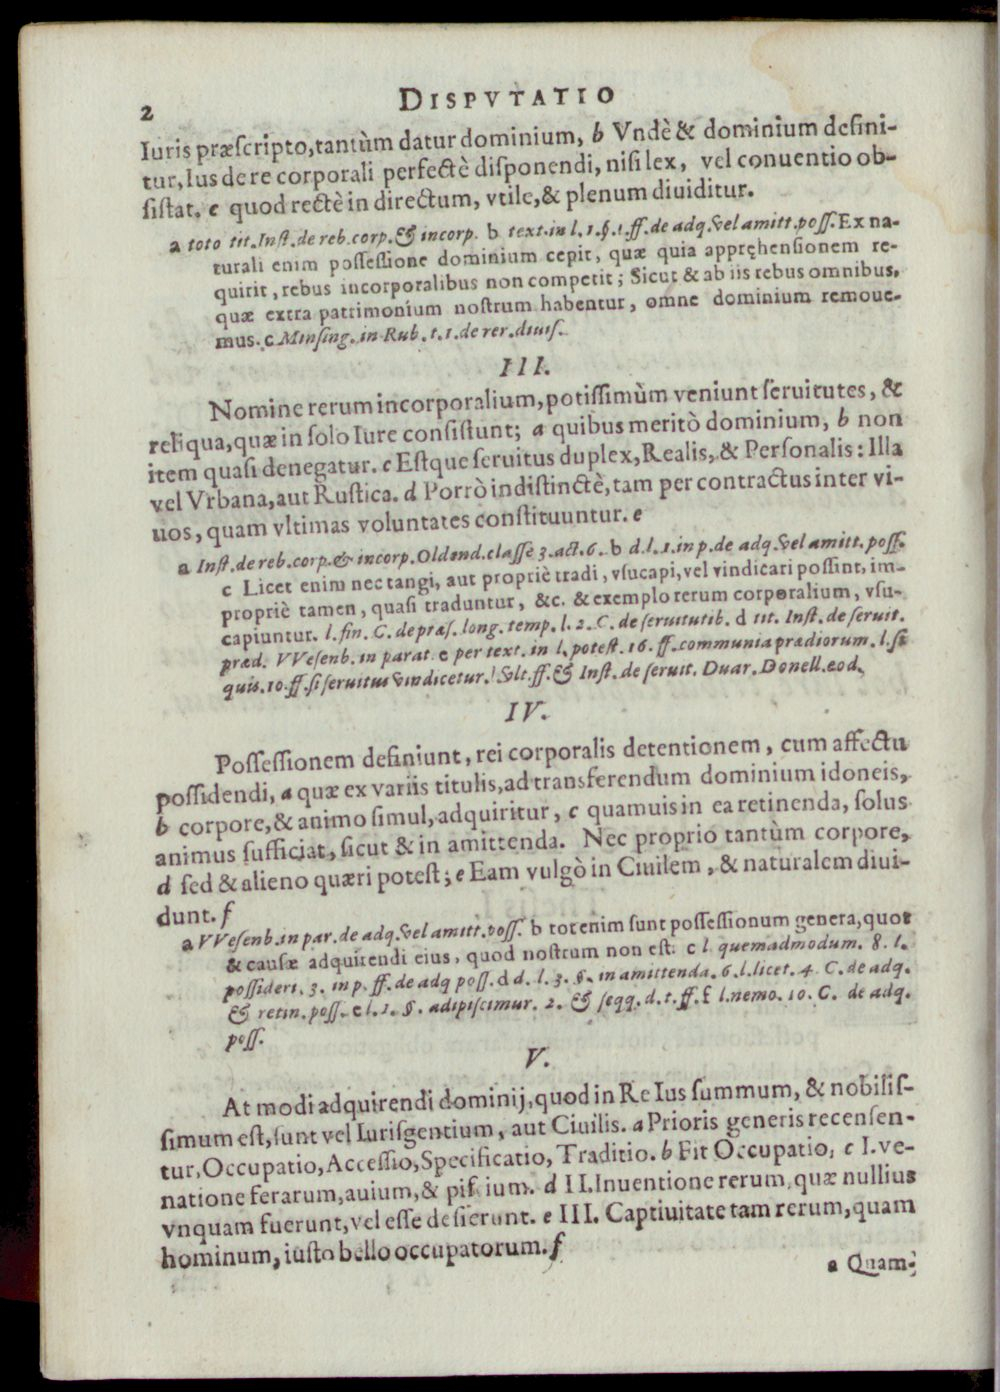 2
DISPVTATIO
Iuris præscripto,tantùm datur dominium, b Vndè & dominium defini-
tur,Ius de re corporali perfectè disponendi, nisi lex, vel conuentio ob-
sistat. c quod rectè in directum, vtile,& plenum diuiditur.
a toto tit.Inst.de reb.corp.& incorp. b text.in l.1.§.1.ff.de adq.vel amitt.poss.Ex na-
turali enim possessione dominium cepit, quæ quia appręhensionem re-
quirit, rebus incorporalibus non competit; Sicut & ab iis rebus omnibus,
quæ extra patrimonium nostrum habentur, omne dominium remoue-
mus. c Minsing. in Rub. t.1.de rer.diuis.
III.
Nomine rerum incorporalium,potissimùm veniunt seruitutes, &
reliqua,quæ in solo Iure consistunt; a quibus meritò dominium, b non
item quasi denegatur. c Estque seruitus duplex,Realis,& Personalis: Illa
vel Vrbana,aut Rustica. d Porrò indistinctè,tam per contractus inter vi-
uos, quam vltimas voluntates constituuntur. e
a Inst.de reb.corp.& incorp.Oldend.classe 3.act.6. b d.l.1.in p.de adq.vel amitt.poss.
c Licet enim nec tangi, aut propriè tradi, vsucapi,vel vindicari possint, im-
propriè tamen, quasi traduntur, &c. & exemplo rerum corporalium, vsu-
capiuntur. l.fin. C. de præs. long. temp. l. 2. C. de seruitutib. d tit. Inst. de seruit.
præd. VVesenb. in parat. e per text. in l. potest. 16. ff. communia prædiorum. l. si
quis.10.ff.si seruitus vindicetur.l vlt.ff.& Inst.de seruit. Duar. Donell.eod.
IV.
Possessionem definiunt, rei corporalis detentionem, cum affectu
possidendi, a quæ ex variis titulis,ad transferendum dominium idoneis,
b corpore,& animo simul,adquiritur, c quamuis in ea retinenda, solus
animus sufficiat, sicut & in amittenda. Nec proprio tantùm corpore,
d sed & alieno quæri potest; e Eam vulgò in Ciuilem, & naturalem diui-
dunt. f
a VVesenb.in par.de adq.vel amitt.poss. b tot enim sunt possessionum genera,quot
& causæ adquirendi eius, quod nostrum non est. c l. quemadmodum. 8. l.
possideri. 3. in p. ff. de adq poss. d d. l. 3. §. in amittenda. 6. l. licet. 4 C. de adq.
& retin. poss. e l. 1. §. adipiscimur. 2. & seqq. d. t. ff. f l. nemo. 10. C. de adq.
poss.
V.
At modi adquirendi dominij,quod in Re Ius summum, & nobilis-
simum est,sunt vel Iurisgentium, aut Ciuilis. a Prioris generis recensen-
tur,Occupatio,Accessio,Specificatio, Traditio. b Fit Occupatio, c I.ve-
natione ferarum,auium,& piscium. d II.Inuentione rerum,quæ nullius
vnquam fuerunt,vel esse desierunt. e III. Captiuitate tam rerum,quam
hominum, iusto bello occupatorum. f
a Quam-